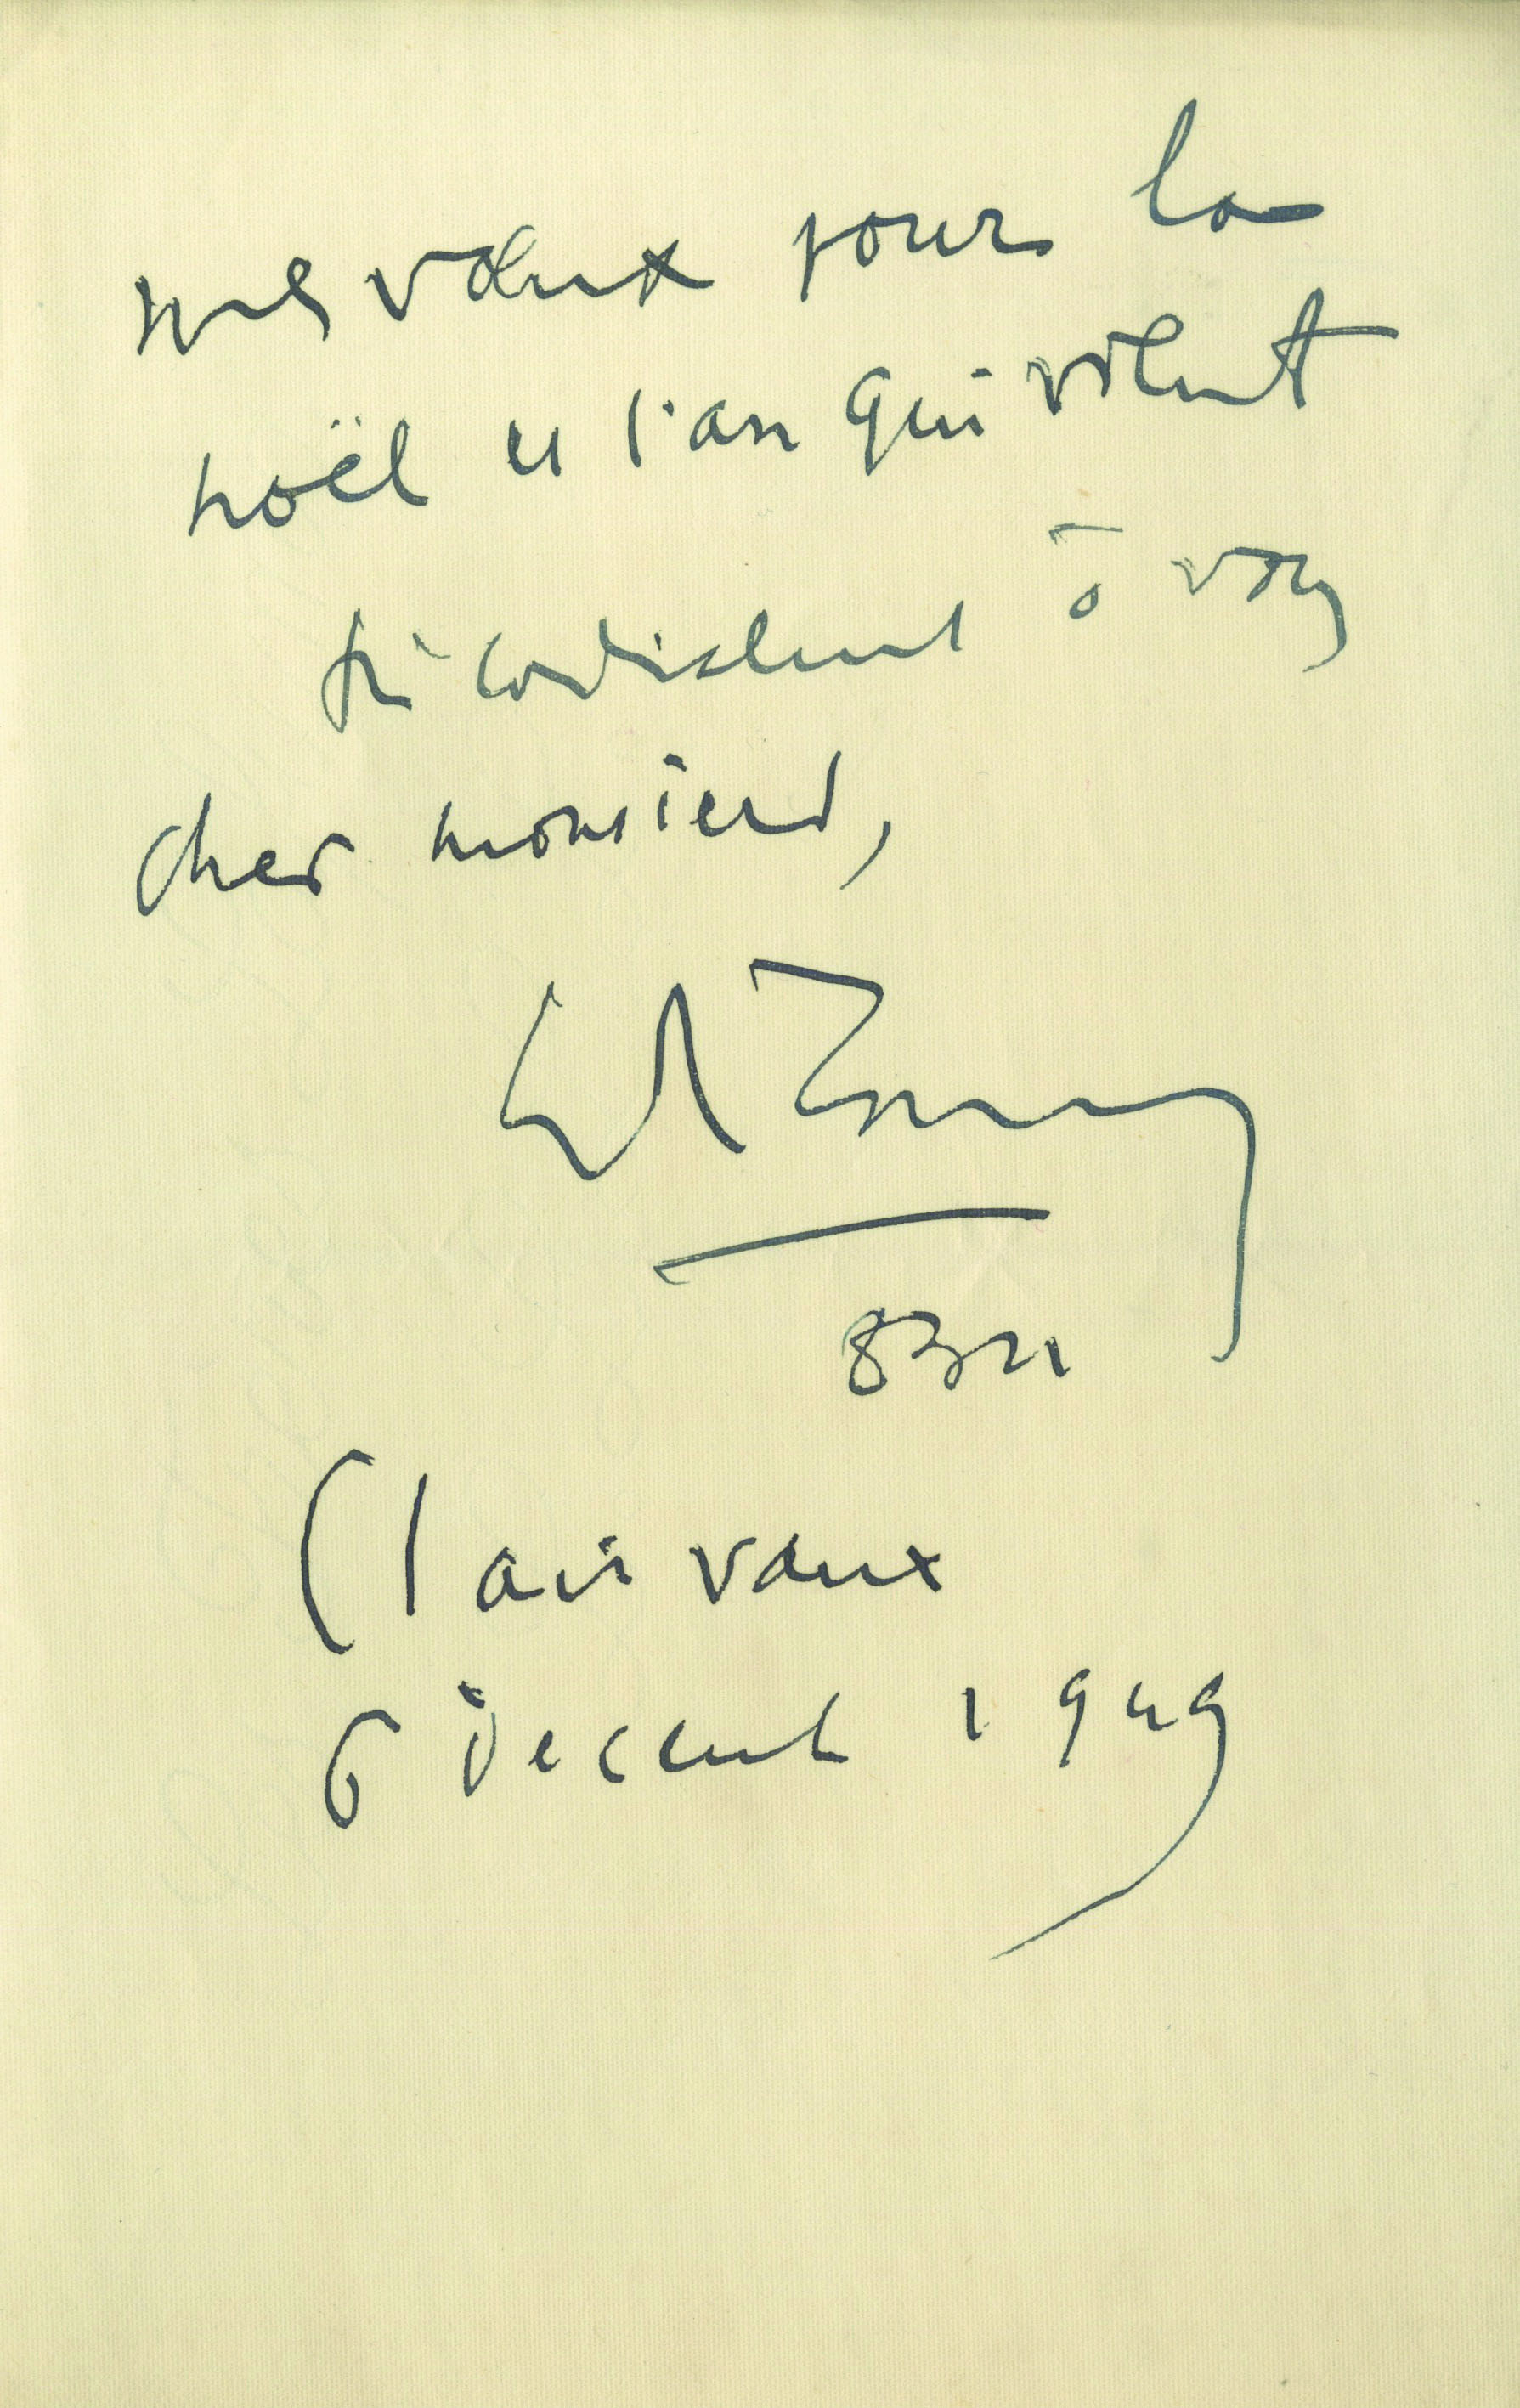 mes vœux pour la
noël et l'an qui vient
très cordialement à vous
cher monsieur,
Ch Maurras
8321
Clairvaux
6 décemb 1949